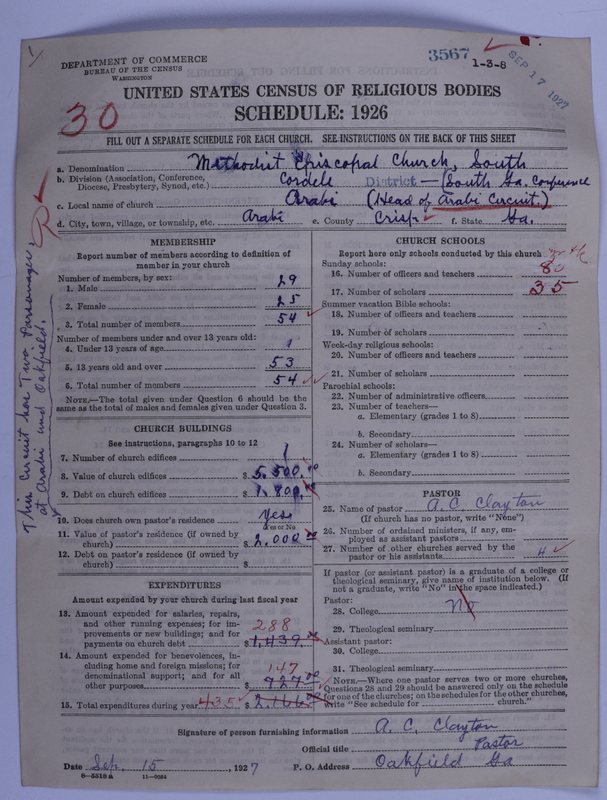 DEPARTMENT OF COMMERCE
BUREAU OF THE CENSUS
WASHINGTON
3567
1-3-8
SEP 17 1927
30
UNITED STATES CENSUS OF RELIGIOUS BODIES
SCHEDULE: 1926
FILL OUT A SEPARATE SCHEDULE FOR EACH CHURCH. SEE INSTRUCTIONS ON THE BACK OF THIS SHEET
a. Denomination Methodist Episcopal Church, South
b. Division (Association, Conference, Diocese, Presbytery, Synod, etc.) Cordele District - (South Ga. Conference
c. Local name of church Arabi (Head of Arabi Circuit.)
d. City, town, village, or township, etc. Arabi e. County Crisp f. State Ga.
This Circuit has Two Parsonages:
at Arabi and Oakfield.
MEMBERSHIP
Report number of members according to definition of
member in your church
Number of members, by sex:
1. Male 29
2. Female 25
3. Total number of members 54
Number of members under and over 13 years old:
4. Under 13 years of age 1
5. 13 years old and over 53
6. Total number of members 54
NOTE.—The total given under Question 6 should be
same as the total of males and females given under Question 3.
CHURCH BUILDINGS
See instructions, paragraphs 10 to 12
7. Number of church edifices 1
8. Value of church edifices $ 5,500.00
9. Debt on church edifices $ 1,800
10. Does church own pastor's residence Yes
Yes or No
11. Value of pastor's residence (if owned by
church) $ 2,000.00
12. Debt on pastor's residence (if owned by
church) $
EXPENDITURES
Amount expended by your church during last fiscal year
13. Amount expended for salaries, repairs,
and other running expenses; for im-
provements or new buildings; and for
payments on church debt 288 $ 1,439.00
14. Amount expended for benevolences, in-
cluding home and foreign missions; for
denominational support; and for all
other purposes 147 $ 727.00
15. Total expenditures during year 435 $ 2,166.00
CHURCH SCHOOLS
Report here only schools conducted by this church
Sunday schools:
16. Number of officers and teachers 8
17. Number of scholars 35
Summer vacation Bible schools:
18. Number of officers and teachers
19. Number of scholars
Week-day religious schools:
20. Number of officers and teachers
21. Number of scholars
Parochial schools:
22. Number of administrative officers
23. Number of teachers—
a. Elementary (grades 1 to 8)
b. Secondary
24. Number of scholars—
a. Elementary (grades 1 to 8)
b. Secondary
PASTOR
25. Name of pastor A. C. Clayton
(If church has no pastor, write "None")
26. Number of ordained ministers, if any, em-
ployed as assistant pastors
27. Number of other churches served by the
pastor or his assistants 4
If pastor (or assistant pastor) is a graduate of a college or
theological seminary, give name of institution below. (If
not a graduate, write "No" in the space indicated.)
Pastor:
28. College No
29. Theological seminary
Assistant pastor:
30. College
31. Theological seminary
NOTE.—Where one pastor serves two or more churches,
Questions 28 and 29 should be answered only on the schedule
for one of the churches; on the schedules for the other churches,
write "See schedule for church."
Signature of person furnishing information A. C. Clayton
Official title Pastor
Date Sep. 15, 1927 P. O. Address Oakfield Ga
8-5518a 11-9084